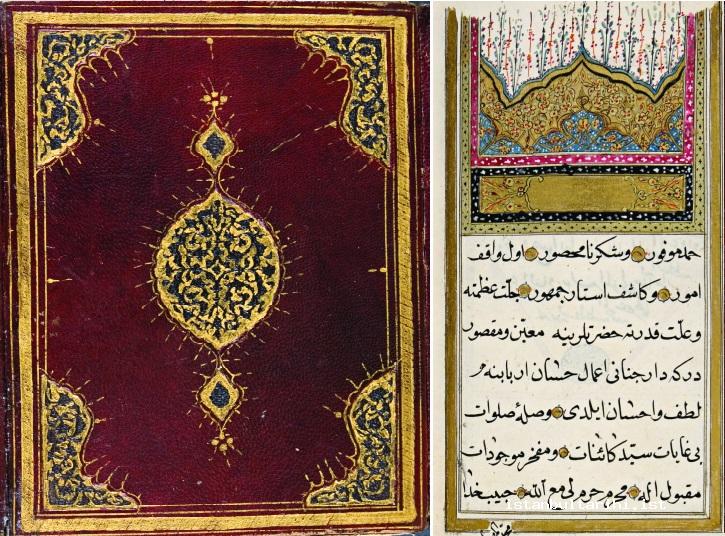 حمد موفور وشكر نا محصور اول واقف
امور وكاشف استار جمهور جلت عظمته
وعلت قدرته حضرتلرينه معين ومقصور
دركه دار جنانى اعمال حسان اربابنه
لطف واحسان ايلدى وصلهٔ صلوات
بى غايات سيد كائنات ومفخر موجودات
مقبول اله محرم حرم لى مع الله حبيب خدا
istanbultarihi.ist